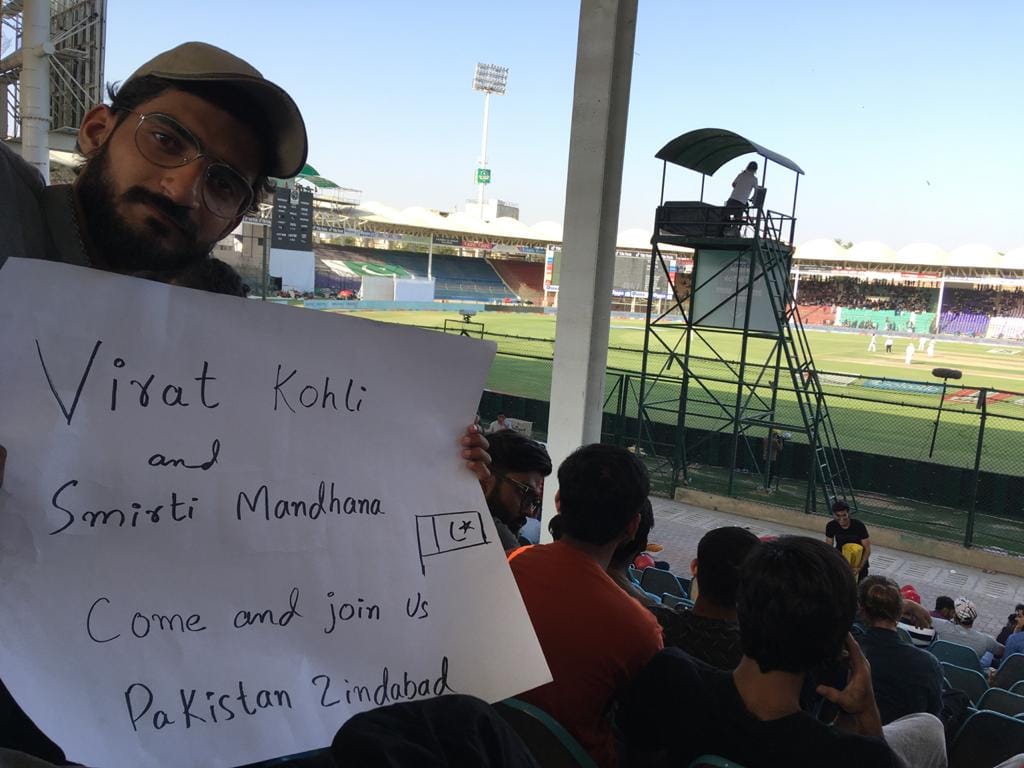 Virat Kohli
and
Smirti Mandhana
Come and join Us
Pakistan Zindabad